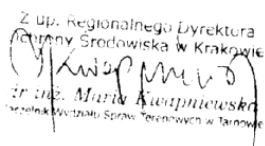 Z up. Regionalnego Dyrektora
Ochrony Środowiska w Krakowie
mgr inż. Maria Kwapniewska
Naczelnik Wydziału Spraw Terenowych w Tarnowie